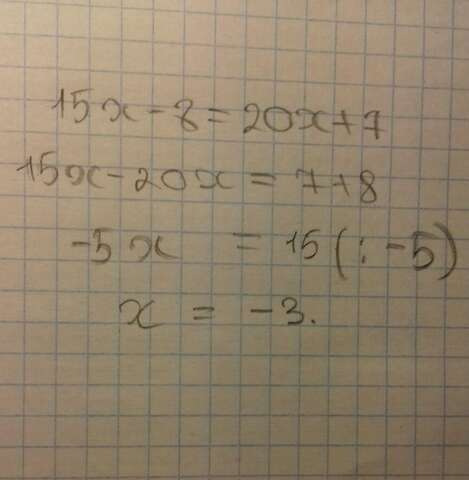 15x - 8 = 20x + 7
15x - 20x = 7 + 8
-5x = 15 (: -5)
x = -3.